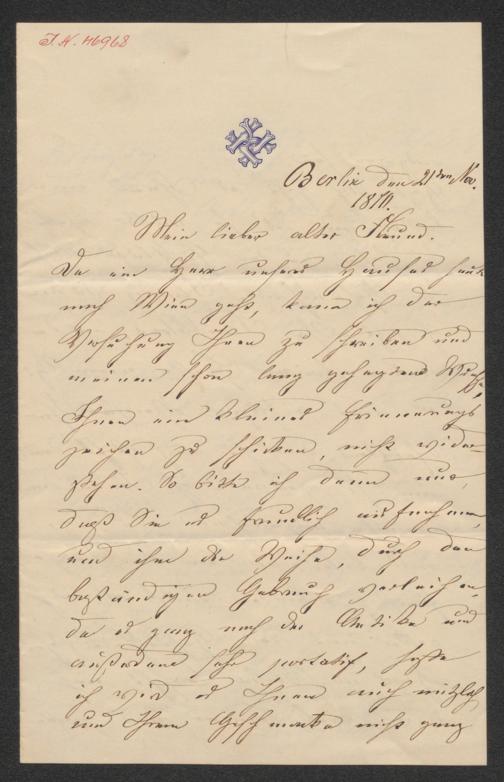 J.N. 46968
Berlin den 21ten Nov.
1870.
Mein lieber alter Freund.
Da ein Herr unseres Hauses heute
nach Wien geht, kann ich der
Versuchung Ihnen zu schreiben und
meinen schon lang gehegten Wunsch,
Ihnen ein kleines Erinnerungs
zeichen zu schicken, nicht wider-
stehen. So bitte ich denn nur,
daß Sie es freundlich aufnehmen,
und ihm die Weihe, durch den
beständigen Gebrauch verleihen,
da es ganz nach der Antike und
außerdem sehr portatif, hoffe
ich wird es Ihnen auch nützlich
und Ihrem Geschmacke nicht ganz